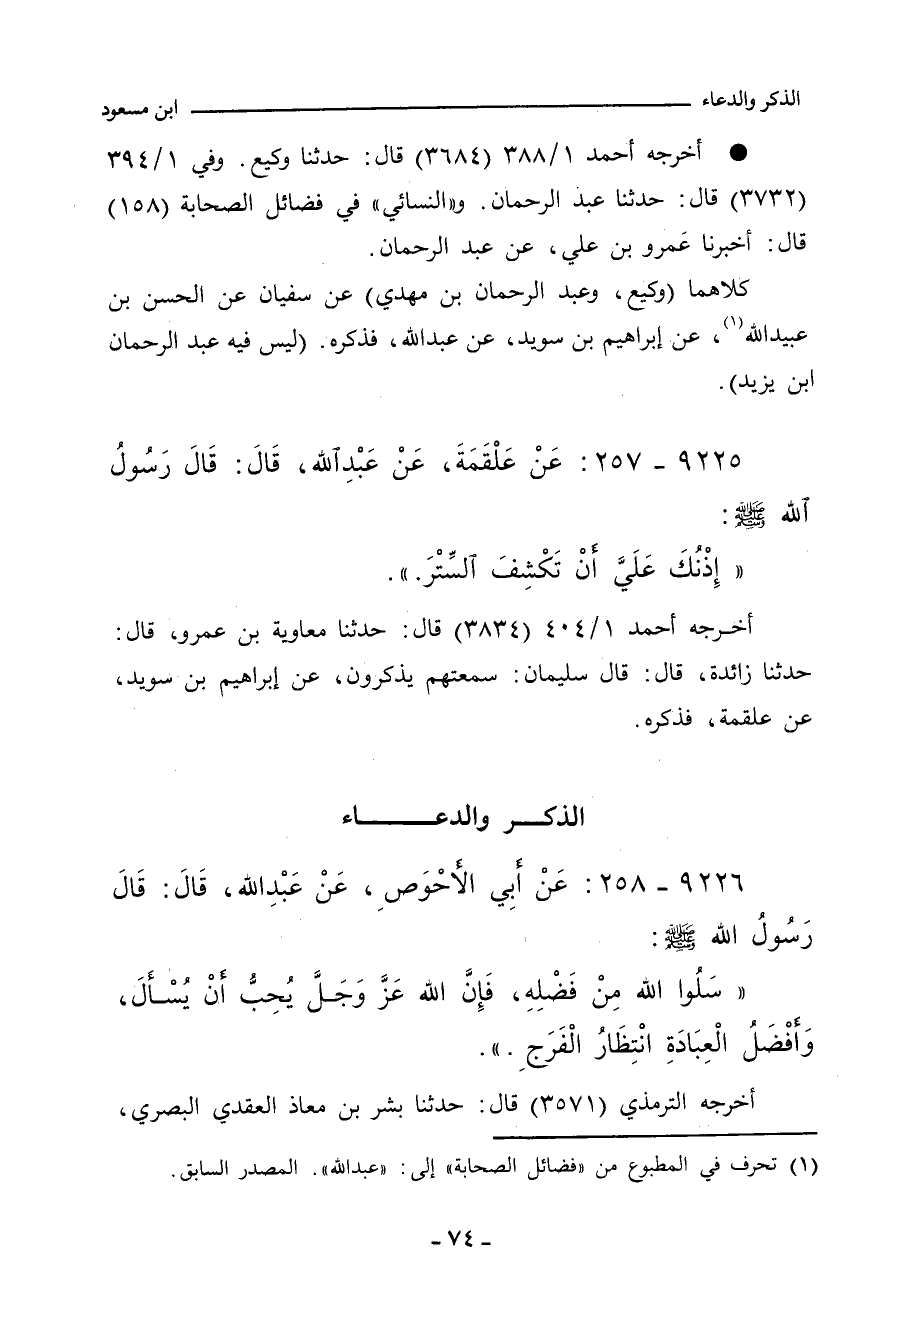 الذكر والدعاء ــــــــــــــــــ ابن مسعود
● أخرجه أحمد ٣٨٨/١ (٣٦٨٤) قال: حدثنا وكيع. وفي ٣٩٤/١
(٣٧٣٢) قال: حدثنا عبد الرحمان. و«النسائي» في فضائل الصحابة (١٥٨)
قال: أخبرنا عَمرو بن علي، عن عبد الرحمان.
كلاهما (وكيع، وعبد الرحمان بن مهدي) عن سفيان عن الحسن بن
عبيدالله(١)، عن إبراهيم بن سويد، عن عبدالله، فذكره. (ليس فيه عبد الرحمان
ابن يزيد).
٩٢٢٥ - ٢٥٧: عَنْ عَلْقَمَةَ، عَنْ عَبْدِالله، قَالَ: قَالَ رَسُولُ
الله ﷺ:
« إِذْنُكَ عَلَيَّ أَنْ تَكْشِفَ السِّتْرَ.».
أخـرجه أحمد ٤٠٤/١ (٣٨٣٤) قال: حدثنا معاوية بن عمرو، قال:
حدثنا زائدة، قال: قال سليمان: سمعتهم يذكرون، عن إبراهيم بن سويد،
عن علقمة، فذكره.
الذكــر والدعــــــاء
٩٢٢٦ - ٢٥٨: عَنْ أَبِي الأَحْوَصِ، عَنْ عَبْدِالله، قَالَ: قَالَ
رَسُولُ الله ﷺ:
« سَلُوا الله مِنْ فَضْلِهِ، فَإِنَّ الله عَزَّ وَجَلَّ يُحِبُّ أَنْ يُسْأَلَ،
وَأَفْضَلُ الْعِبَادَةِ انْتِظَارُ الْفَرَجِ.».
أخرجه الترمذي (٣٥٧١) قال: حدثنا بشر بن معاذ العقدي البصري،
(١) تحرف في المطبوع من «فضائل الصحابة» إلى: «عبدالله». المصدر السابق.
- ٧٤ -